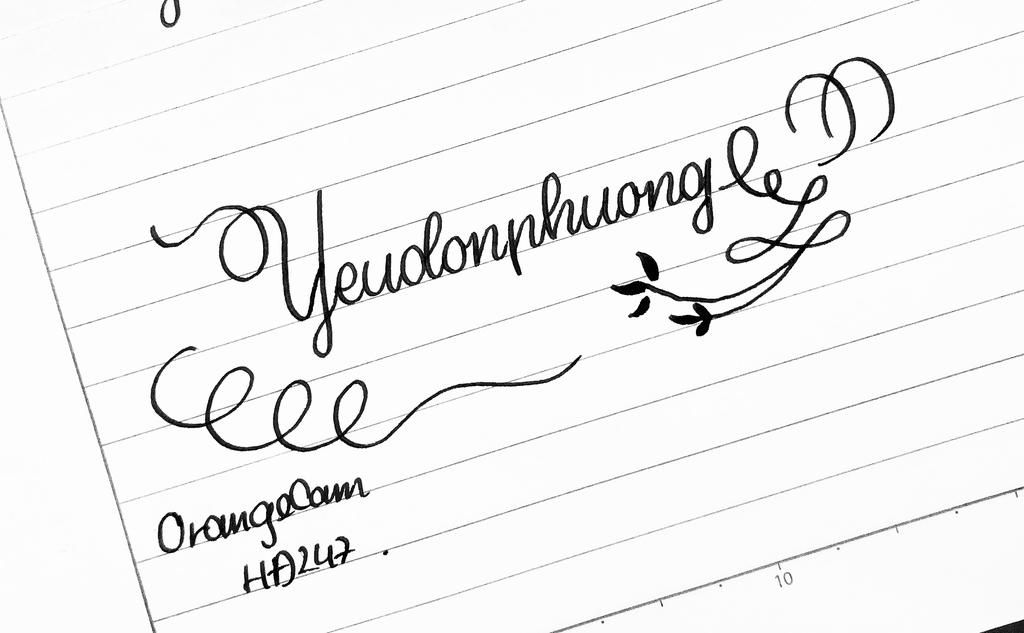 Yeudonphuong
OrangeCam
HA247 .
10